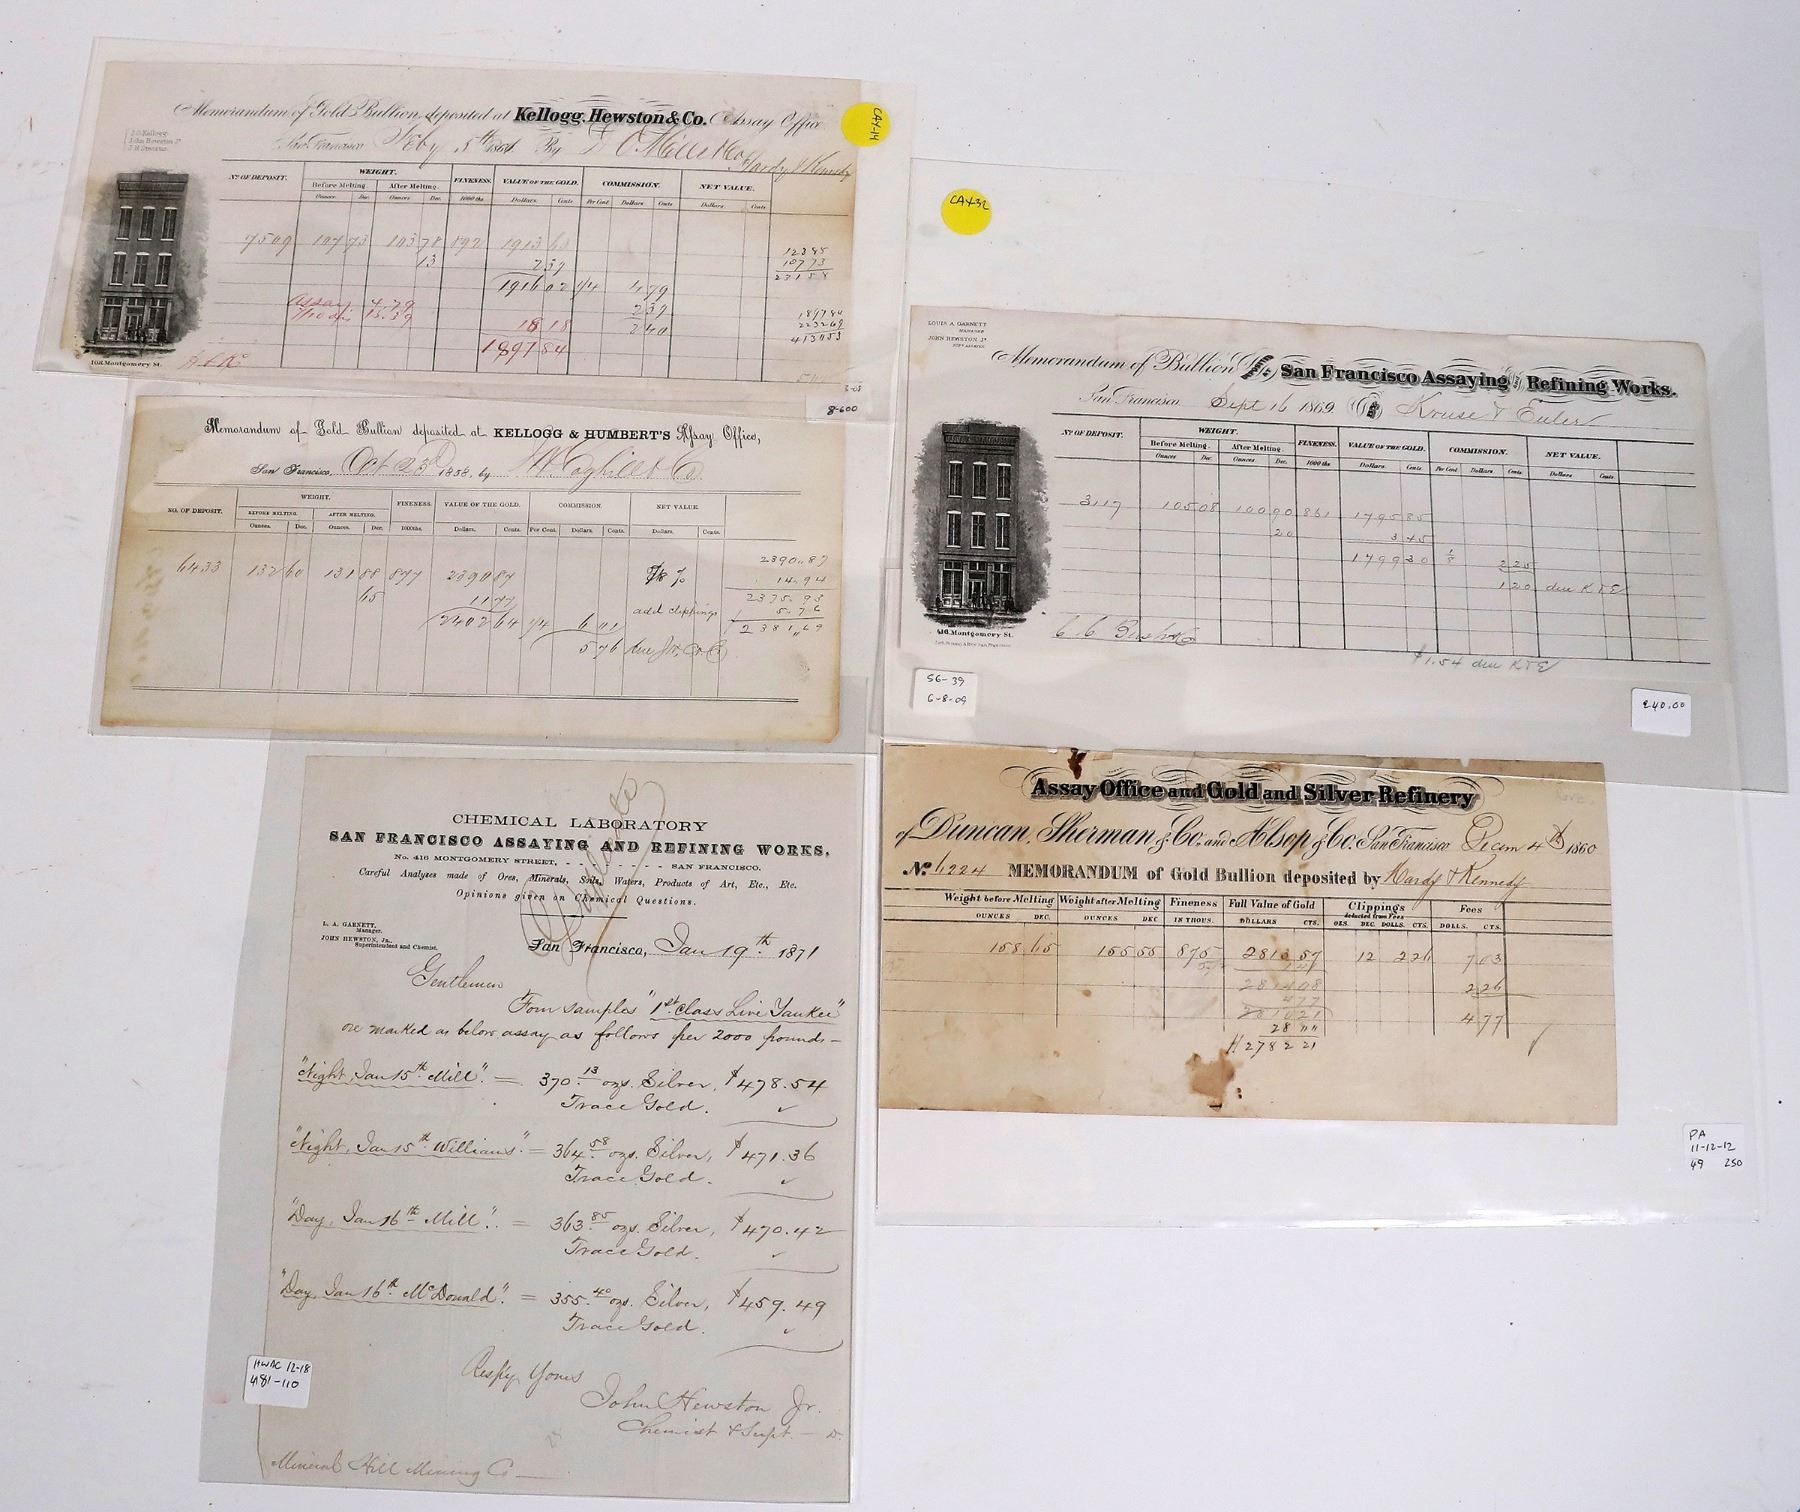 Memorandum of Gold Bullion deposited at Kellogg, Hewston & Co. Assay Office
CAY-14
J.G. Kellogg
John Hewston Jr
J.H. Stearns
San Francisco Feby 5th 1861 By D O Mills & Co
Hardy & Kennedy
No OF DEPOSIT. WEIGHT. FINENESS. VALUE OF THE GOLD. COMMISSION. NET VALUE.
Before Melting After Melting. 1000 ths
Ounces Dec. Ounces Dec. Dollars. Cents Per Cent Dollars Cents Dollars. Cents
7509 107 73 103 78 892 1913 63
13 2 39
1916 02 1/4 4 79
2 39
2 40
123 85
107 73
231 58
Assay 4.79
13.39
18 18
1897 84
1897 84
2232 69
4130 53
108 Montgomery St.
8-600
Memorandum of Gold Bullion deposited at KELLOGG & HUMBERT'S Assay Office,
San Francisco, Oct 23d 1858, by W. Coghill & Co.
NO. OF DEPOSIT. WEIGHT. FINENESS. VALUE OF THE GOLD. COMMISSION. NET VALUE.
BEFORE MELTING. AFTER MELTING. 1000ths.
Ounces. Dec. Ounces. Dec. Dollars. Cents. Per Cent. Dollars. Cents. Dollars. Cents.
6433 132 60 131 88 877 2390 87
65 11 77
2402 64 1/4 6 01
5 76 due W. C. & Co
5/8 %
add clippings
2390.87
14.94
2375.93
5.76
2381.69
CAY32
LOUIS A. GARNETT
MANAGER
JOHN HEWSTON Jr
SUPT ASSAYER
Memorandum of Bullion San Francisco Assaying and Refining Works.
San Francisco Sept 16 1869 Kruse & Euler
No OF DEPOSIT. WEIGHT. FINENESS. VALUE OF THE GOLD. COMMISSION. NET VALUE.
Before Melting. After Melting. 1000 ths
Ounces Dec. Ounces. Dec. Dollars. Cents. Per Cent Dollars Cents Dollars Cents
3117 105 08 100 90 861 1795 85
20 3 45
1799 30 1/8 2 25
1 20 due K & E
416 Montgomery St.
$1.54 due K & E
56-39
6-8-09
£40.00
CHEMICAL LABORATORY
SAN FRANCISCO ASSAYING AND REFINING WORKS.
No. 416 MONTGOMERY STREET, - - - - - - - - SAN FRANCISCO.
Careful Analyses made of Ores, Minerals, Soils, Waters, Products of Art, Etc., Etc.
Opinions given on Chemical Questions.
Duplicate
L. A. GARNETT,
Manager.
JOHN HEWSTON, Jr.,
Superintendent and Chemist.
San Francisco, Jan 19th 1871
Gentlemen
Four samples "1st Class Live Yankee"
ore marked as below assay as follows per 2000 pounds -
"Night, Jan 15th Mill". = 370.13 ozs. Silver, $478.54
Trace Gold.
"Night, Jan 15th Williams" = 364.58 ozs. Silver, $471.36
Trace Gold.
"Day, Jan 16th Mill". = 363.85 ozs. Silver, $470.42
Trace Gold.
"Day, Jan 16th McDonald". = 355.40 ozs. Silver, $459.49
Trace Gold.
Respy Yours
John Hewston Jr.
Chemist & Supt.
Mineral Hill Mining Co
HWAC 12-18
4181-110
Assay Office and Gold and Silver Refinery
of Duncan, Sherman & Co. and Alsop & Co. San Francisco Decem 4th 1860
No. 6224 MEMORANDUM of Gold Bullion deposited by Hardy & Kennedy
Weight before Melting Weight after Melting Fineness Full Value of Gold Clippings Fees
deducted from Fees
OUNCES DEC. OUNCES DEC IN THOUS. DOLLARS CTS. OZS. DEC. DOLLS. CTS. DOLLS. CTS.
158 65 155 55 875 2813 57 12 2 26 7 03
2 26
4 77
28 "
2782 21
PA
11-12-12
49 250